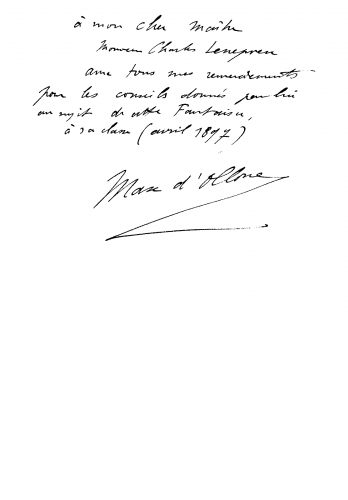 à mon cher Maître
Monsieur Charles Lenepveu
avec tous mes remerciements
pour les conseils donnés par lui
au sujet de cette Fantaisie,
à sa classe (avril 1897)
Max d'Ollone